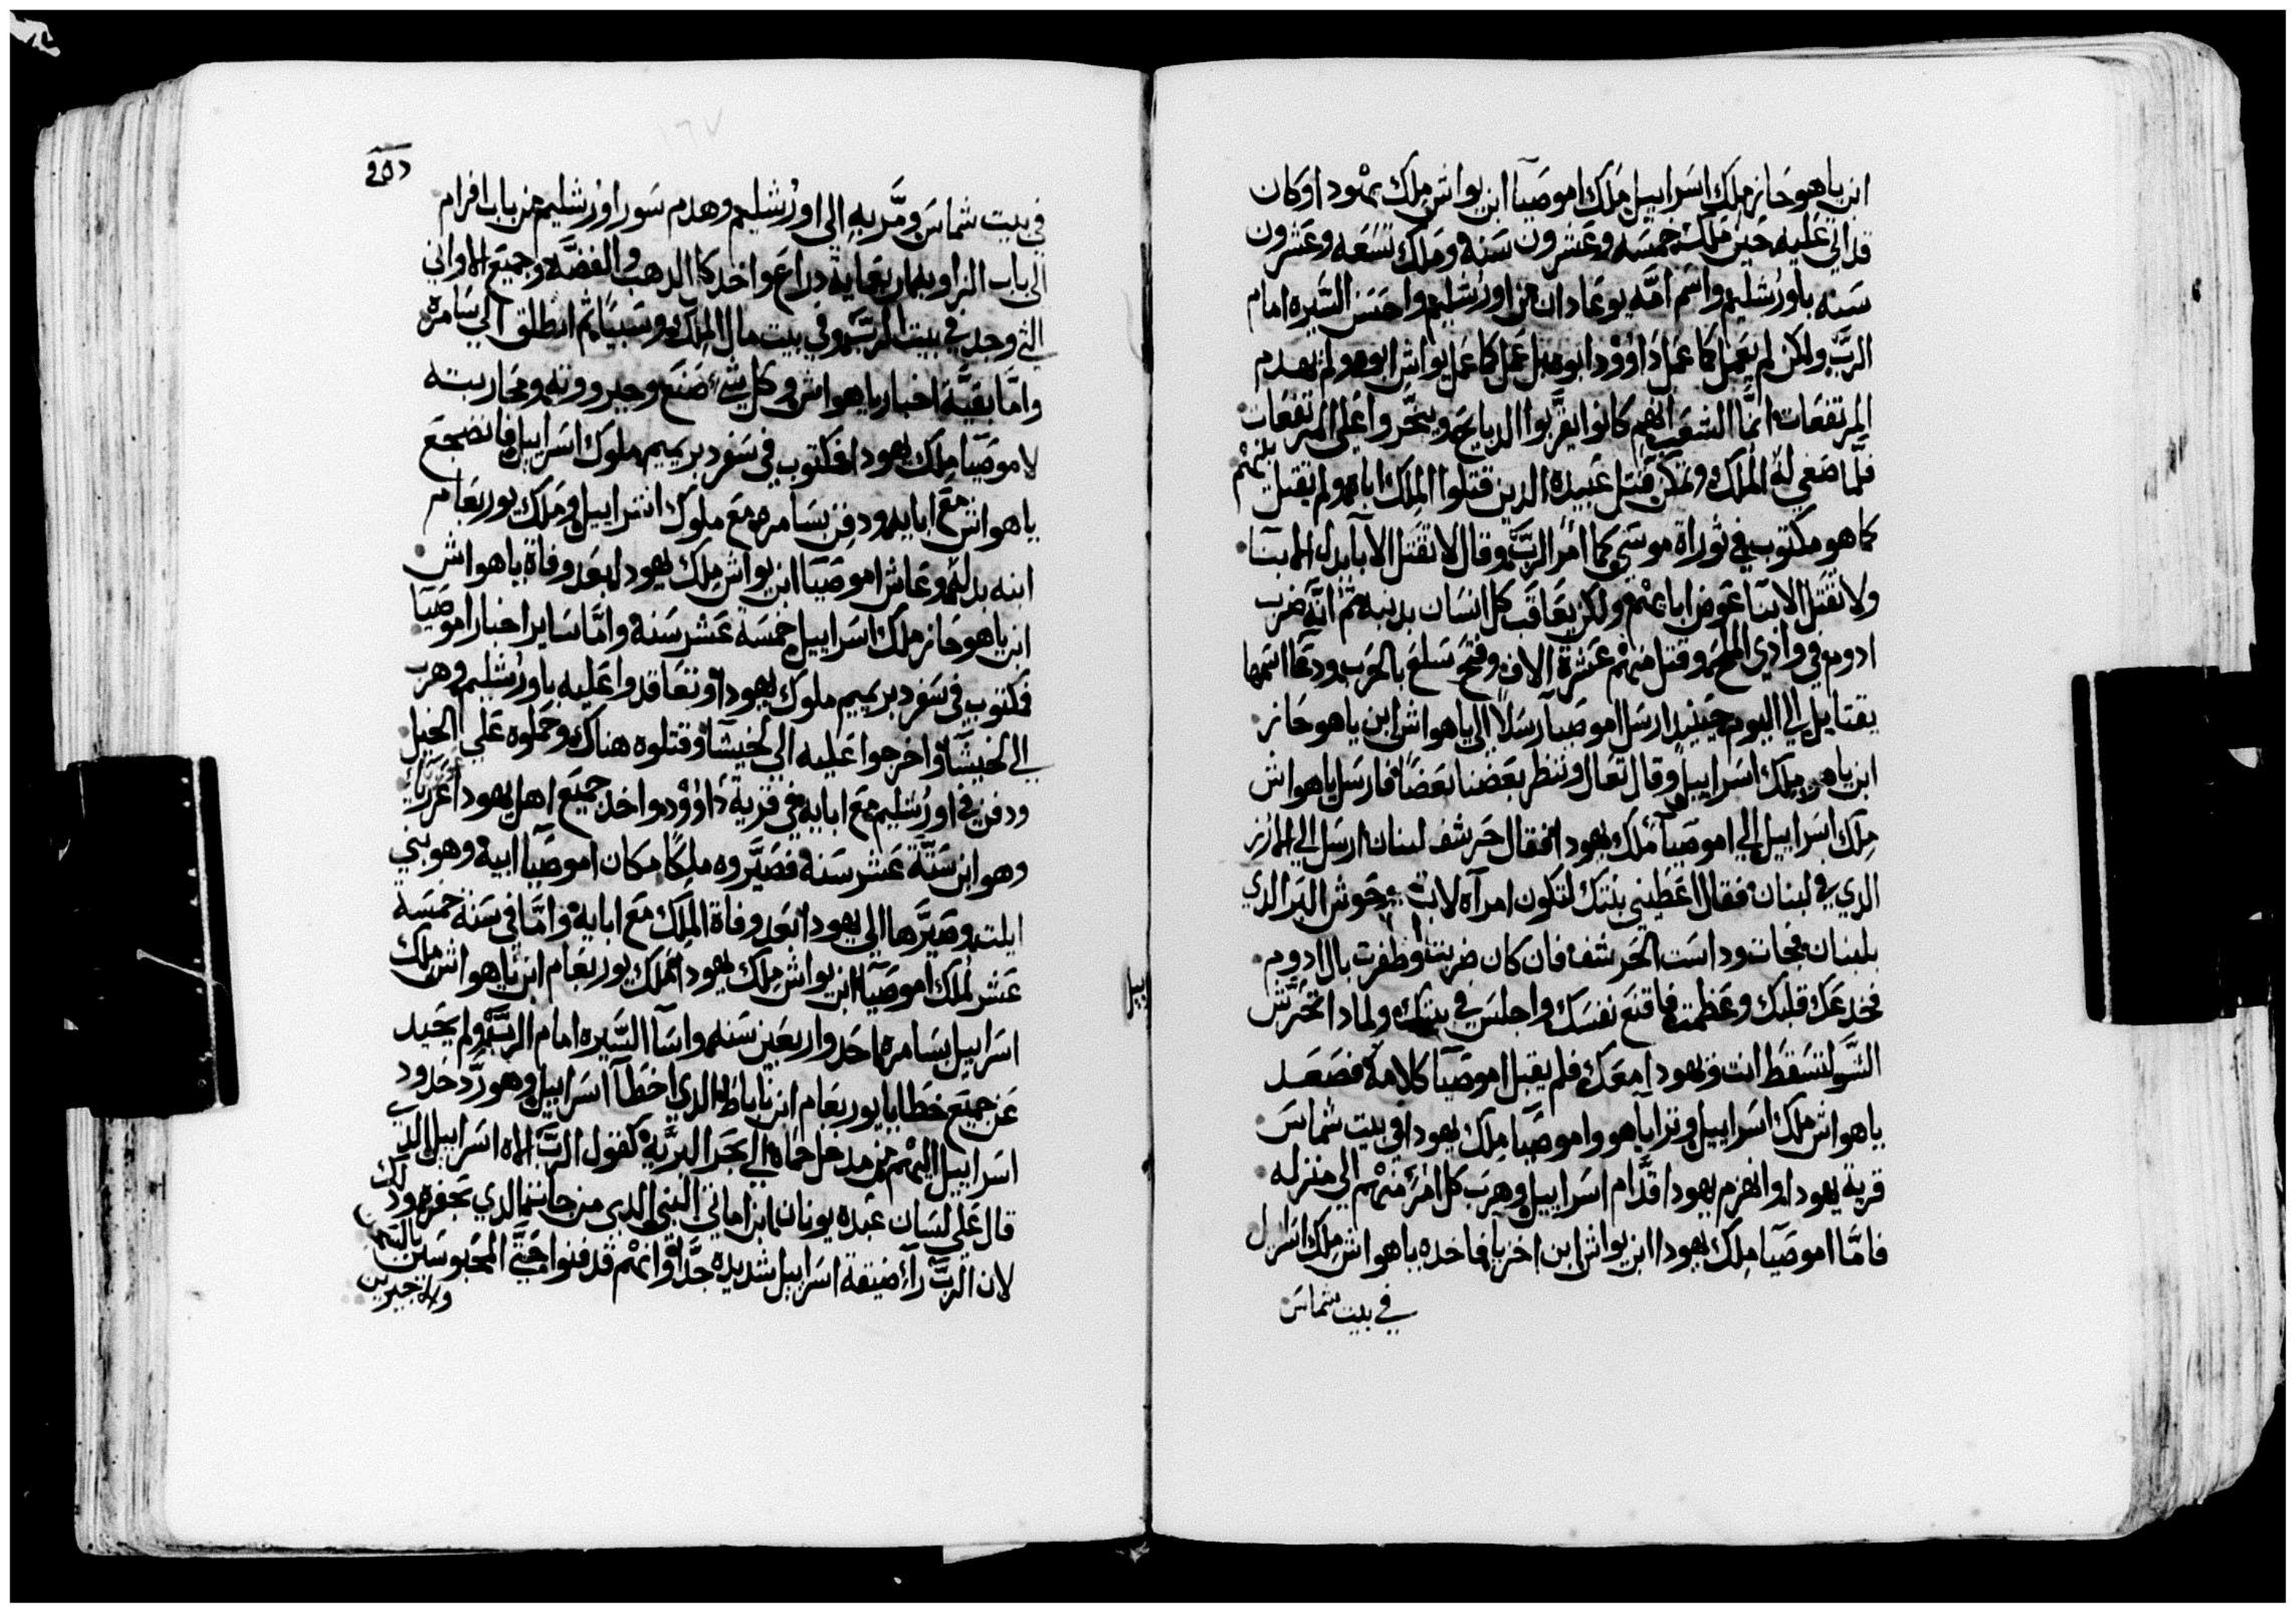 ابن ياهوحاز ملك اسراييل ملك اموصيا ابن يواش ملك يهودا وكان
قد اتي عليه حين ملك خمسه وعشرون سنة وملك تسعه وعشرون
سنه باورشليم واسم امه يوعادان من اورشليم واحسن السيره امام
الرب ولكن لم يعمل كما عمل داوود ابوه بل عمل كما عمل يواش ابوه ولم يهدم
المرتفعات انما الشعب لانهم كانوا يقربوا الدبايح ويبخروا علي المرتفعات
فلما صغي له الملك وتمكن قتل عبيده الدين قتلوا الملك اباه ولم يقتل بنيهم
كما هو مكتوب في توراة موسي كما امر الرب وقال لا تقتل الابا بدل الابنا
ولا تقتل الابنا عوض ابايهم ولكن يعاقب كل انسان بدنبه تم انه ضرب
ادوم في وادي الملح وقتل منهم عشرة الاف وفتح سلع بالحرب ودعا اسمها
يقتايل الي اليوم حينيد ارسل اموصيا رسلا الي ياهواش ابن ياهوحاز
ابن ياهو ملك اسراييل وقال تعال وننظر بعضنا بعضا فارسل ياهواش
ملك اسراييل الي اموصيا ملك يهودا فقال حرشف لبنان ارسل الي الارز
الدي في لبنان فقال اعطيني بنتك لتكون امرآه لابني فجات وحوش البر الدي
بلبنان فجات وداست الحرشف فان كان ضربت وظفرت بال ادوم
فخدعك قلبك وعظمت فاقنع نفسك واجلس في بيتك ولمادا تتحرش
الشر لتسقط انت ويهودا معك فلم يقبل اموصيا كلامه فصعد
ياهواش ملك اسراييل وترايا هو واموصيا ملك يهودا في بيت شماس
قرية يهودا وانهزم يهودا قدام اسراييل وهرب كل امرء منهم الي منزله
فاما اموصيا ملك يهودا ابن يواش ابن اخزيا فاخده ياهواش ملك اسراييل
في بيت شماس
في بيت شماس ومر به الي اورشليم وهدم سور اورشليم من باب افرام
الي باب الزاويه اربعماية دراع واخد كل الدهب والفضة وجميع الاواني
التي وجد في بيت الرب وفي بيت مال الملك وسبيا تم انطلق الي سامره
واما بقية اخبار ياهواش وكل شي صنع وجبروته ومحاربته
لاموصيا ملك يهودا فمكتوب في سفر دبريميم ملوك اسراييل فانضجع
ياهواش مع ابايه ودفن بسامره مع ملوك اسراييل وملك يوربعام
ابنه بدله وعاش اموصيا ابن يواش ملك يهودا بعد وفاة ياهواش
ابن ياهوحاز ملك اسراييل خمسة عشر سنة واما ساير اخبار اموصيا
فمكتوب في سفر دبريميم ملوك يهودا وتعاقدوا عليه باورشليم وهرب
الي لخيشا واخرجوا عليه الي لخيشا وقتلوه هناك وحملوه علي الخيل
ودفن في اورشليم مع ابايه في قرية داوود واخد جميع اهل يهودا عزريا
وهو ابن ستة عشر سنة فصيروه ملكا مكان اموصيا ابيه وهو بني
ايلت وصيرها الي يهودا بعد وفاة الملك مع ابايه واما في سنة خمسة
عشر لملك اموصيا ابن يواش ملك يهودا ملك يوربعام ابن ياهواش ملك
اسراييل بسامره احد واربعين سنه واسآ السيره امام الرب ولم يحيد
عن جميع خطايا يوربعام ابن ناباط الدي اخطآ اسراييل وهو رد حدود
اسراييل اليهم من مدخل حماه الي بحر البرية كقول الرب اله اسراييل الدي
قال علي لسان عبده يونان ابن اماتي النبي الدي من جات الدي بحفر
لان الرب رآ ضيقة اسراييل شديده جدا وانهم قد فنوا حتي المحبوسين